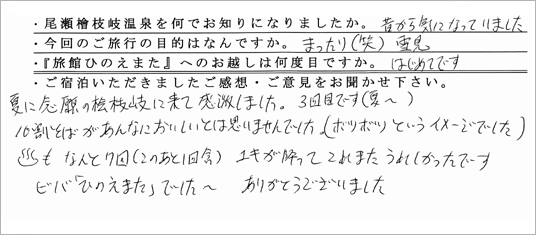 ・尾瀬檜枝岐温泉を何でお知りになりましたか。 昔から気になっていました
・今回のご旅行の目的はなんですか。 まったり(笑) 雪見
・『旅館ひのえまた』へのお越しは何度目ですか。 はじめてです
・ご宿泊いただきましたご感想・ご意見をお聞かせ下さい。
夏に念願の桧枝岐に来て感激しました。3回目です(夏〜)
10割そばがあんなにおいしいとは思いませんでした(ボソボソというイメージでした)
♨も なんと7回(このあと1回含) ユキが降ってこれまたうれしかったです
ビバ「ひのえまた」でした〜 ありがとうございました